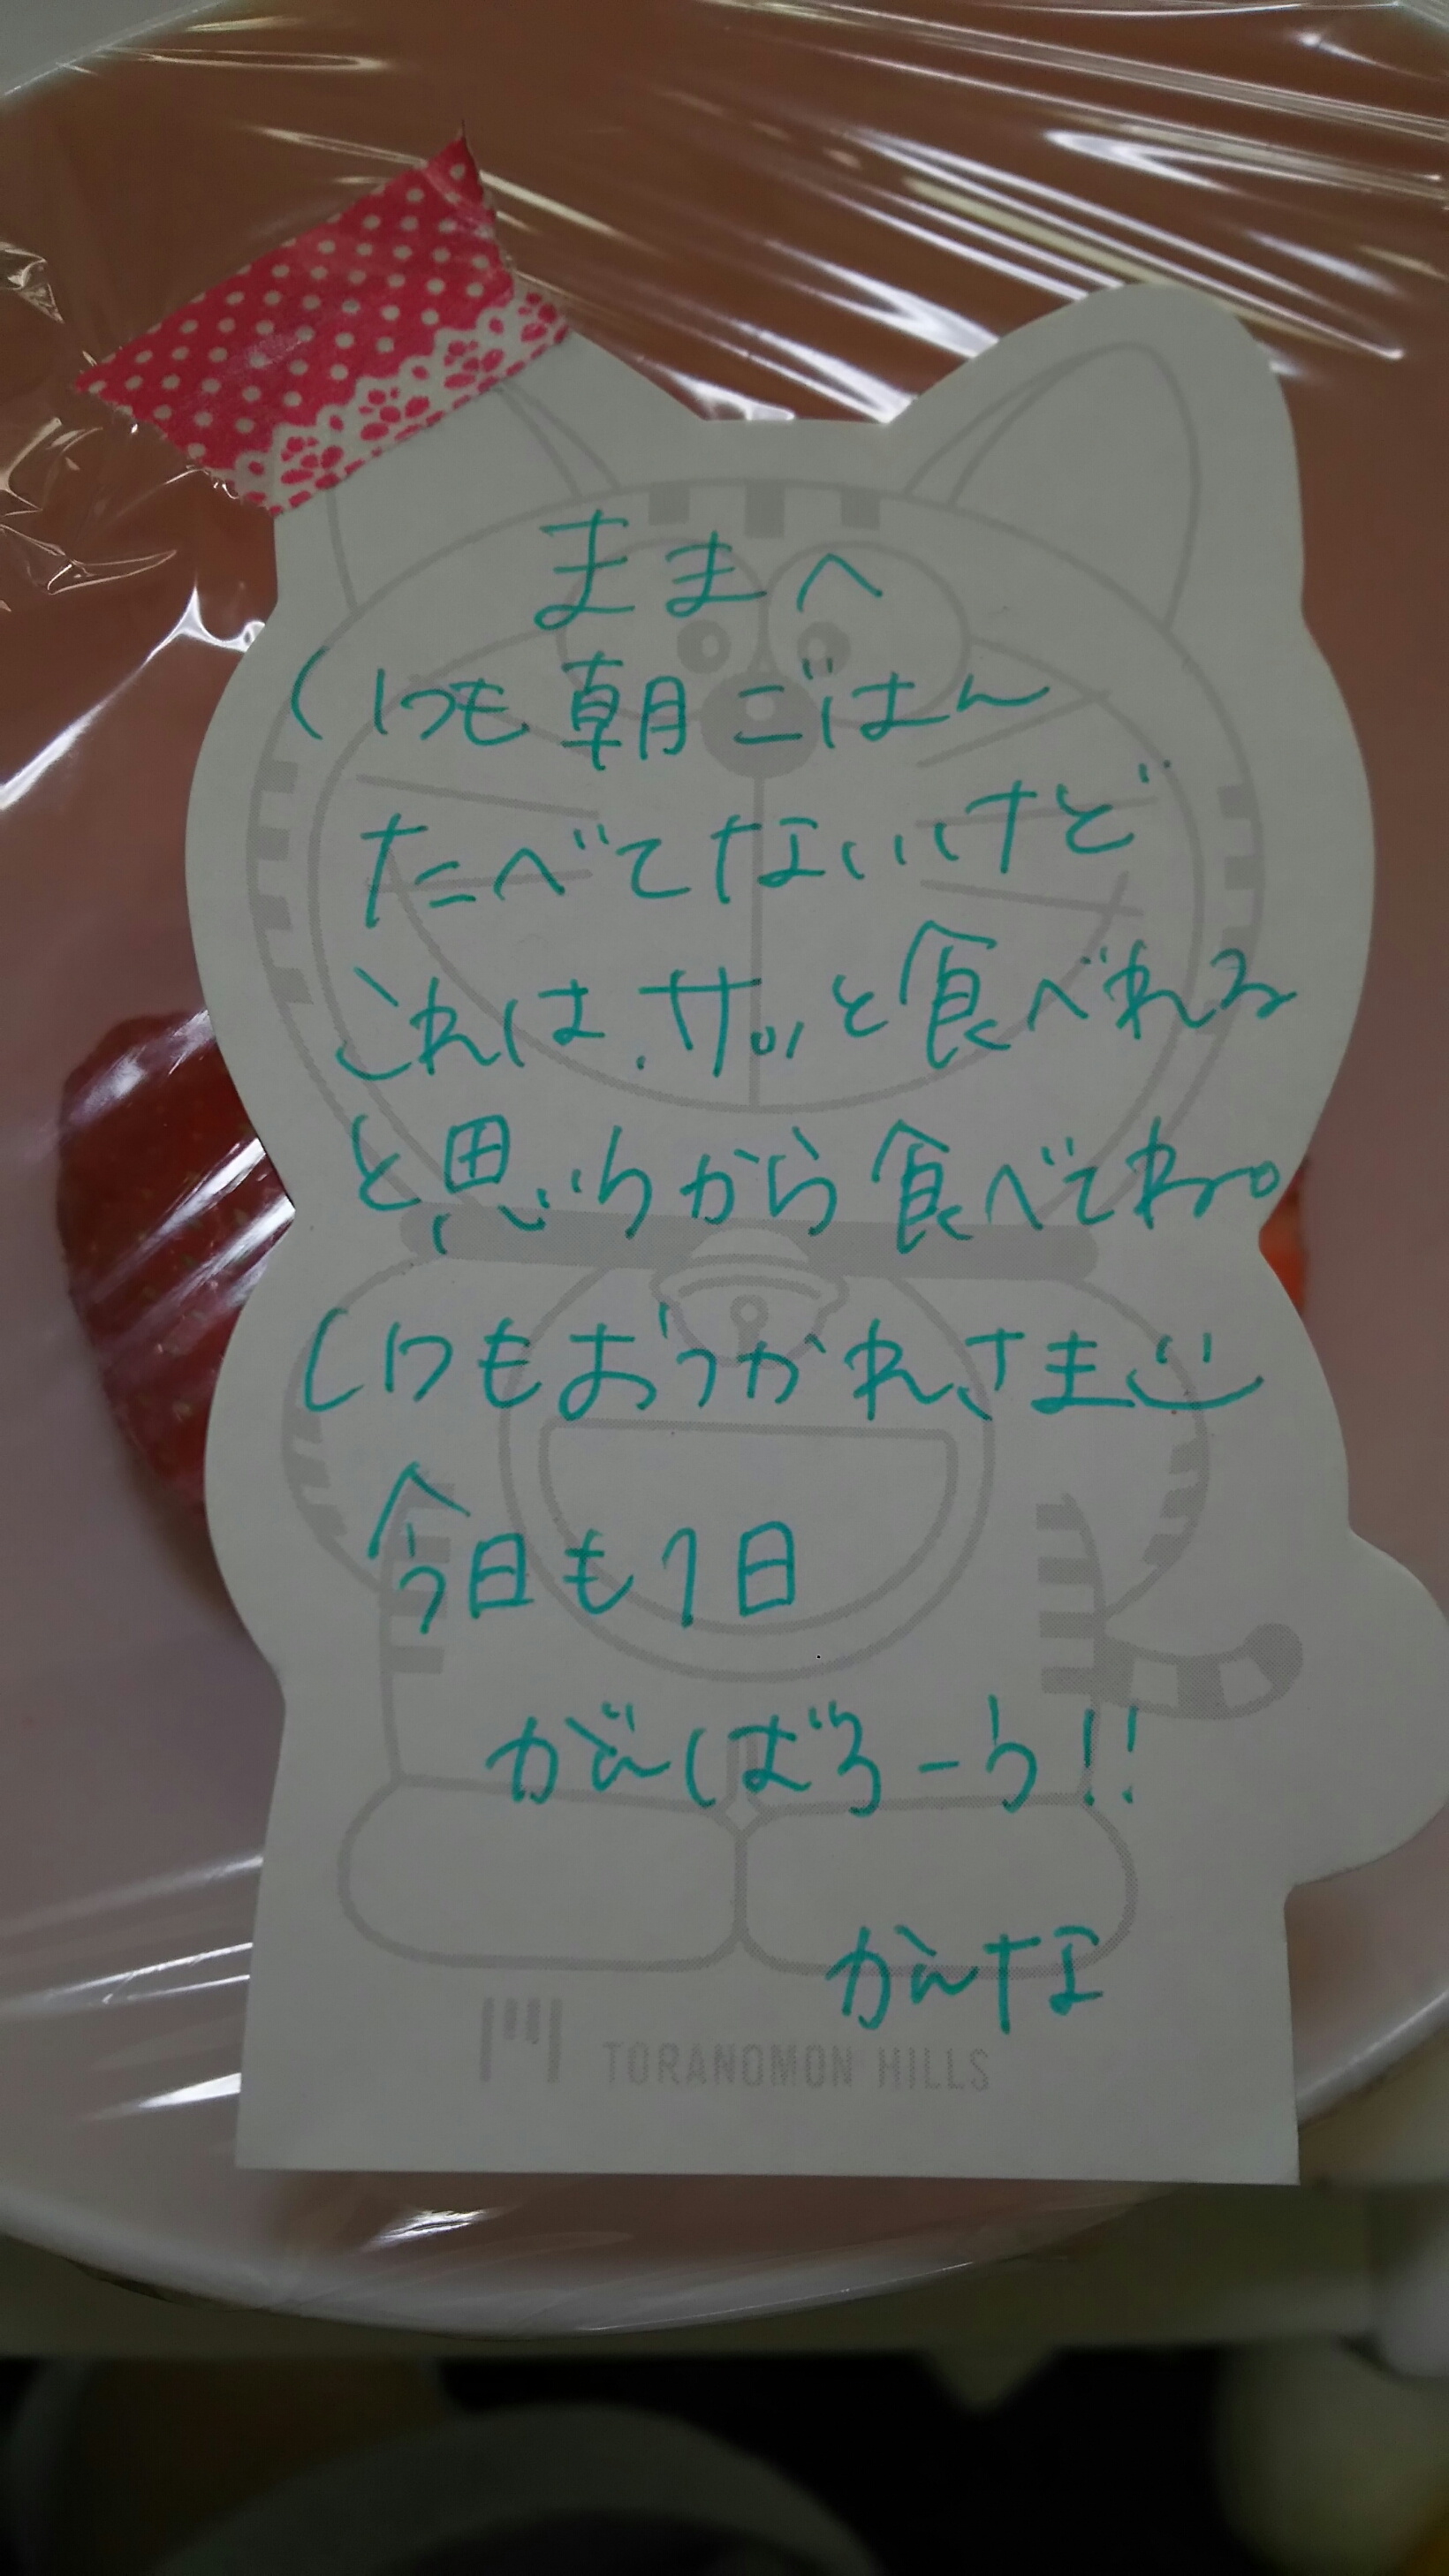 ままへ
いつも朝ごはん
たべてないけど
これは、サッと食べれる
と思いうから食べてね。
いつもおつかれさま
今日も1日
がんばろーう!!
かんな
TORANOMON HILLS